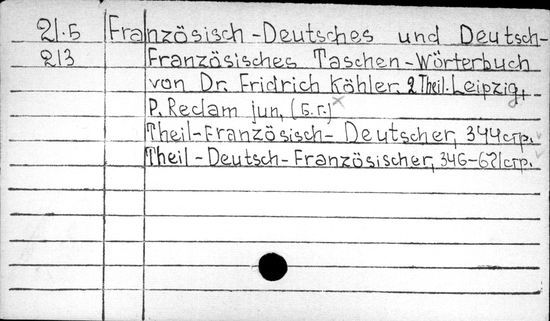 21.5 Französisch-Deutsches und Deutsch-
213 Französisches Taschen-Wörterbuch
von Dr. Fridrich Köhler. 2 Theil. Leipzig,
P. Reclam jun, (б.г.)
Theil-Französisch-Deutscher, 344стр.
Theil-Deutsch-Französischer, 346-671стр.